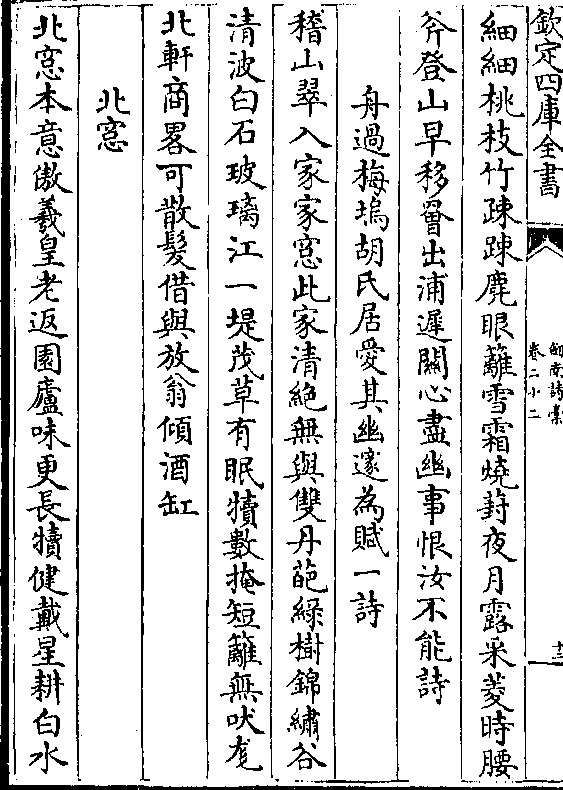 欽定四庫全書
劍南詩稾
卷二十二
十三
細細桃枝竹疎踈麂眼籬雪霜燒葑夜月露采菱時腰
斧登山早移罾出浦遲關心盡幽事恨汝不能詩
舟過梅塢胡氏居愛其幽邃為賦一詩
稽山翠入家家窓此家清絶無與雙丹葩綠樹錦繡谷
清波白石玻瓈江一堤茂草有眠犢數掩短籬無吠尨
北軒商畧可散髮借與放翁傾酒缸
北窓
北窓本意傲羲皇老返園廬味更長犢健戴星耕白水